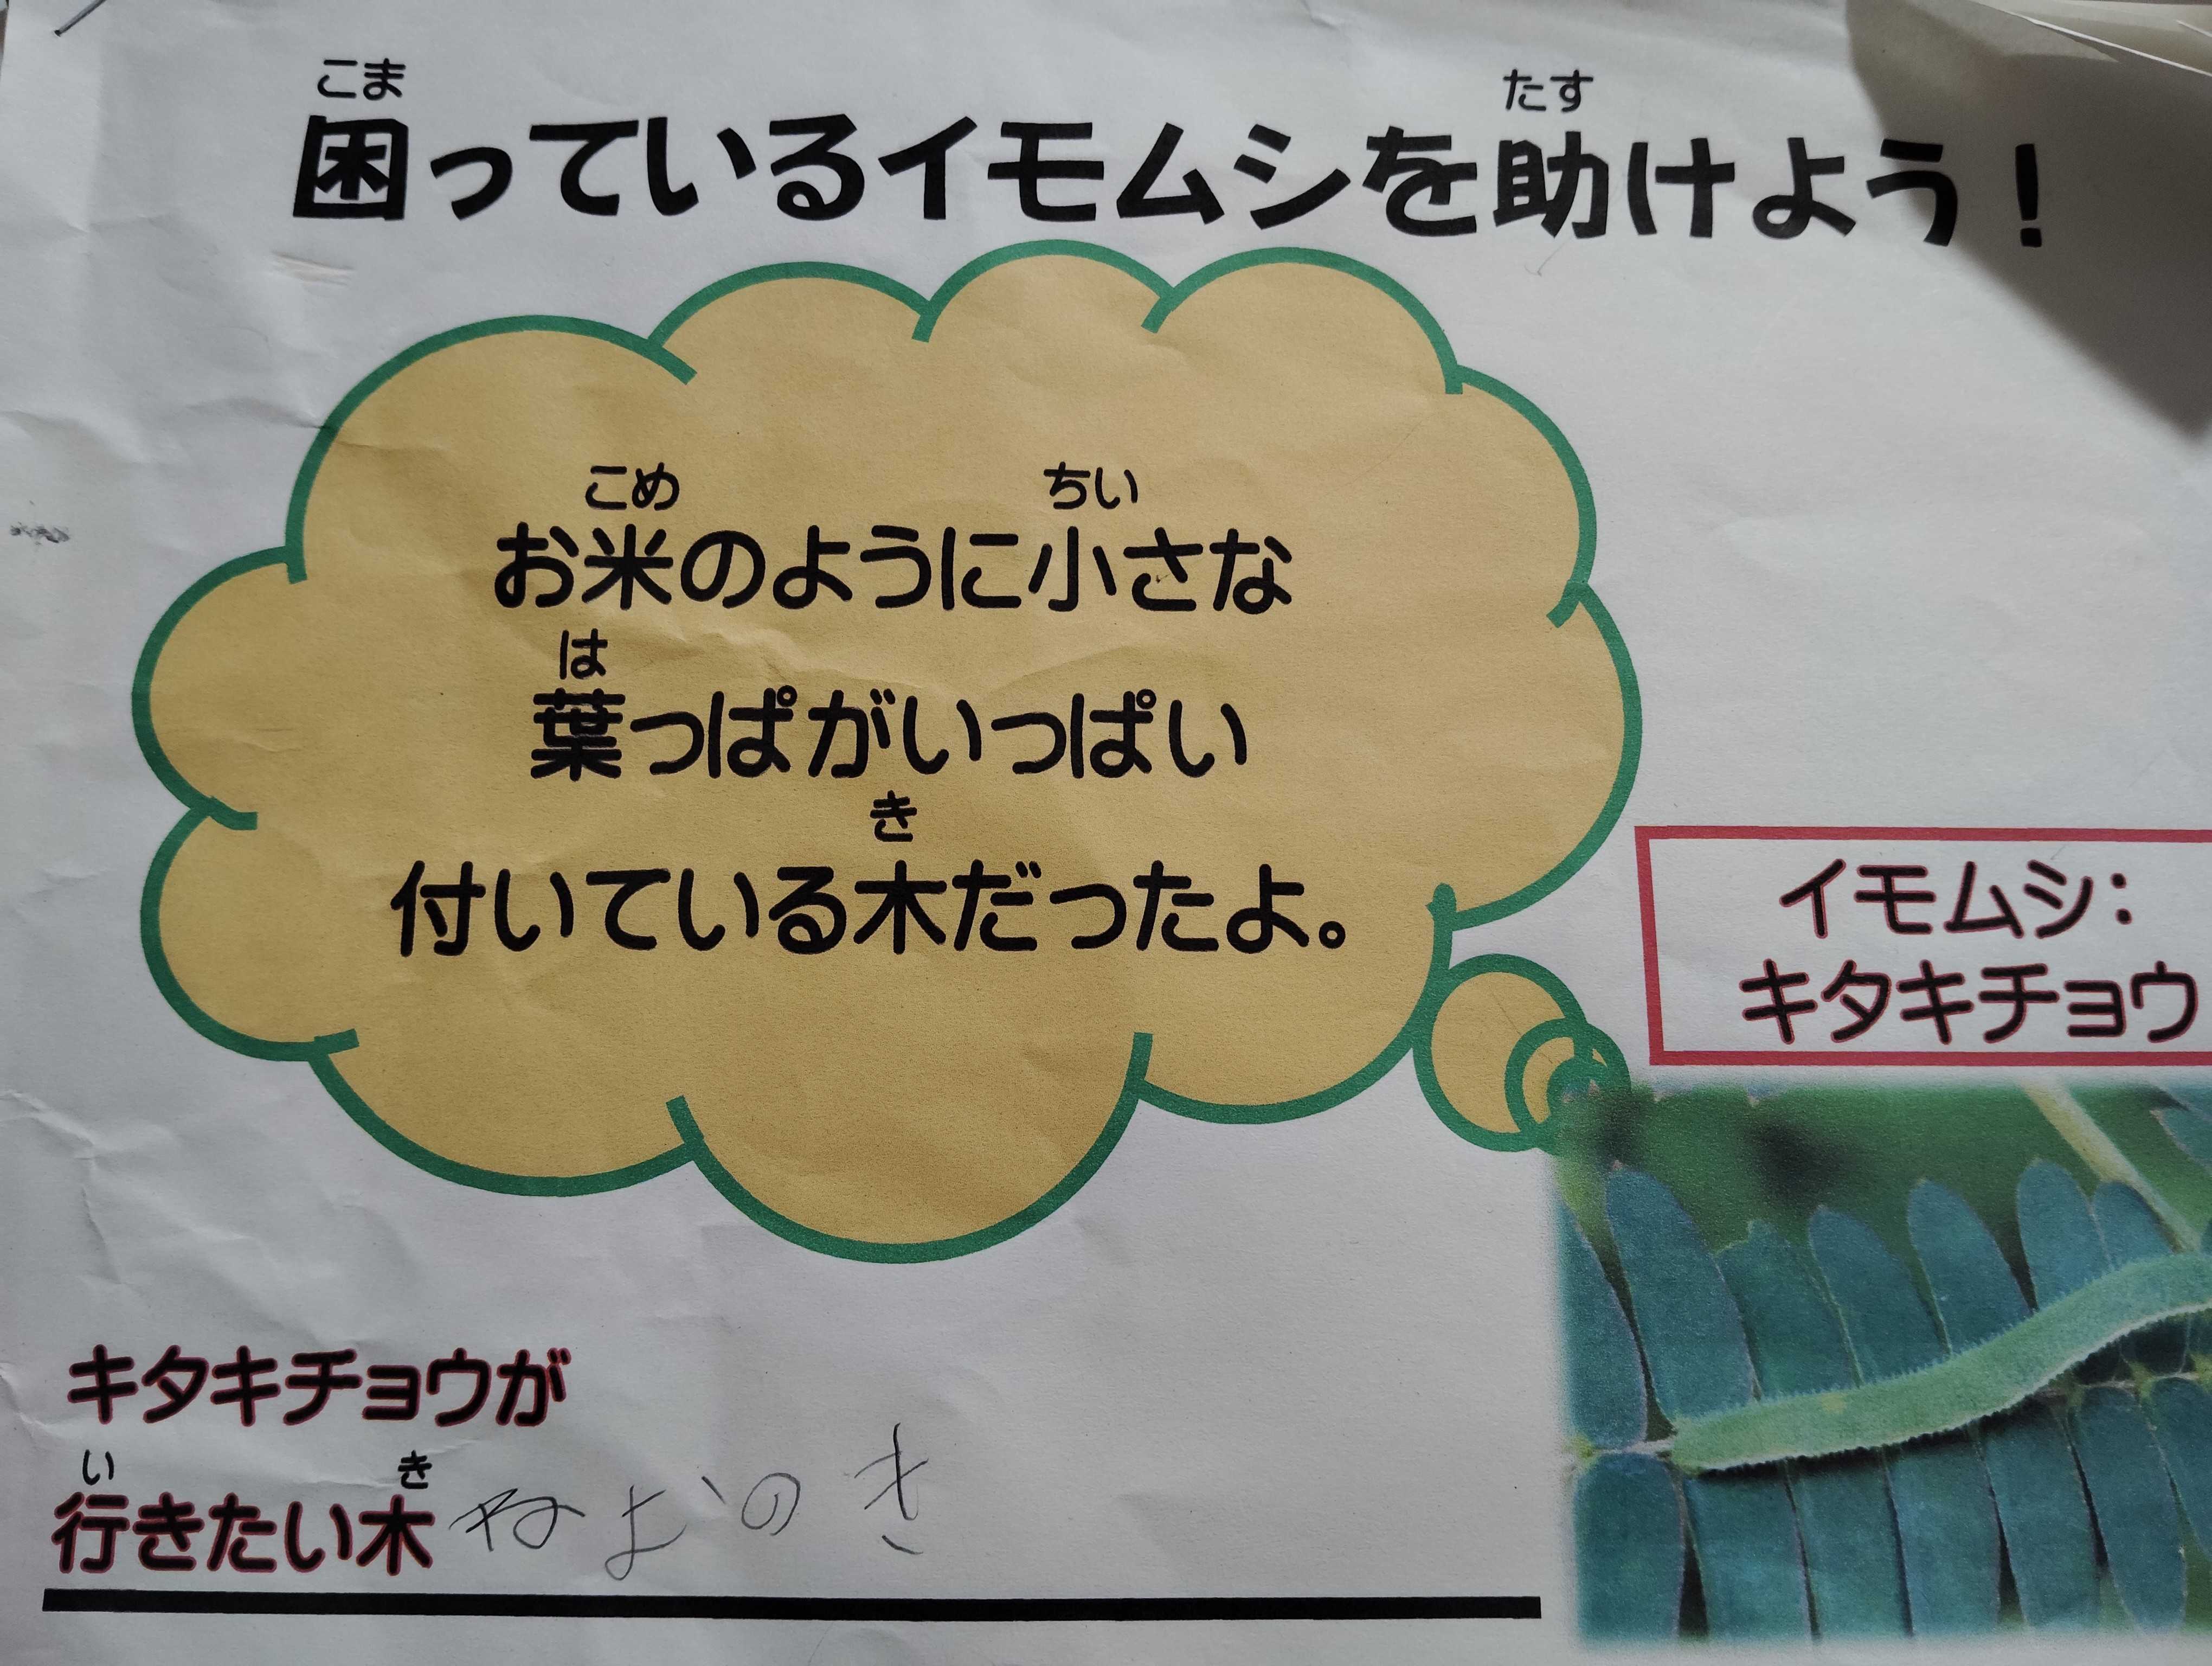 こま たす
困っているイモムシを助けよう！
こめ ちい
お米のように小さな
は
葉っぱがいっぱい
き
付いている木だったよ。
イモムシ：
キタキチョウ
キタキチョウが
い き
行きたい木 ねむのき